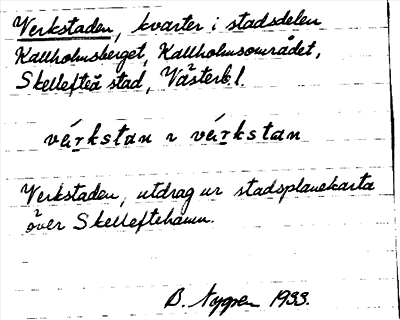 Verkstaden, kvarter i stadsdelen
Kallholmsberget, Kallholmsområdet,
Skellefteå stad, Västerb l.
vérkstan ɿ vérkstan
Verkstaden, utdrag ur stadsplanekarta
över Skelleftehamn.
B. Nygren 1933.